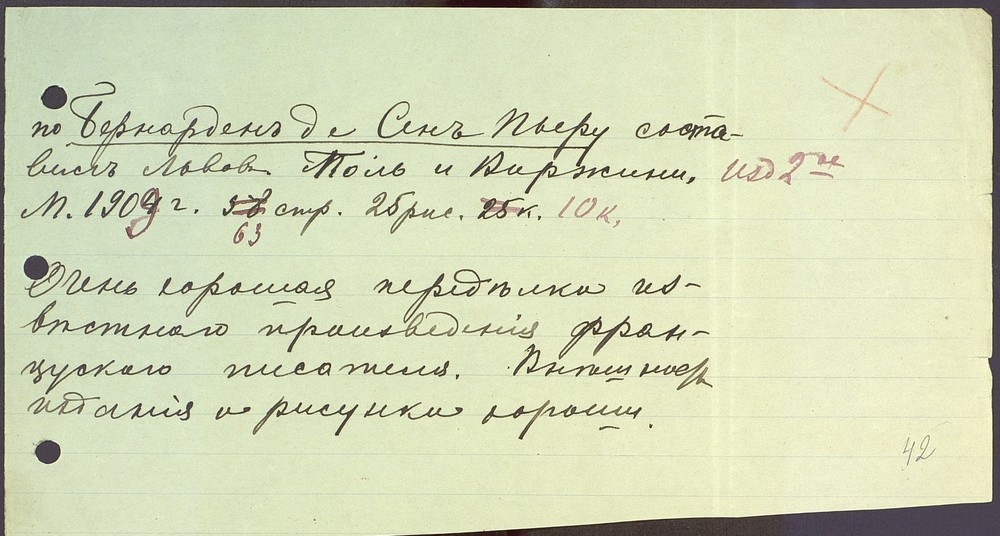 по Бернарденъ де Сенъ Пьеру соста-
вилъ Львовъ Поль и Виржини. изд 2ое
М. 1909 г. 58 стр. 25 рис. 25 к. 10 к.
63
Очень хорошая передѣлка из-
вѣстнаго произведенія фран-
цускаго писателя. Внѣшность
изданія и рисунки хороши.
42